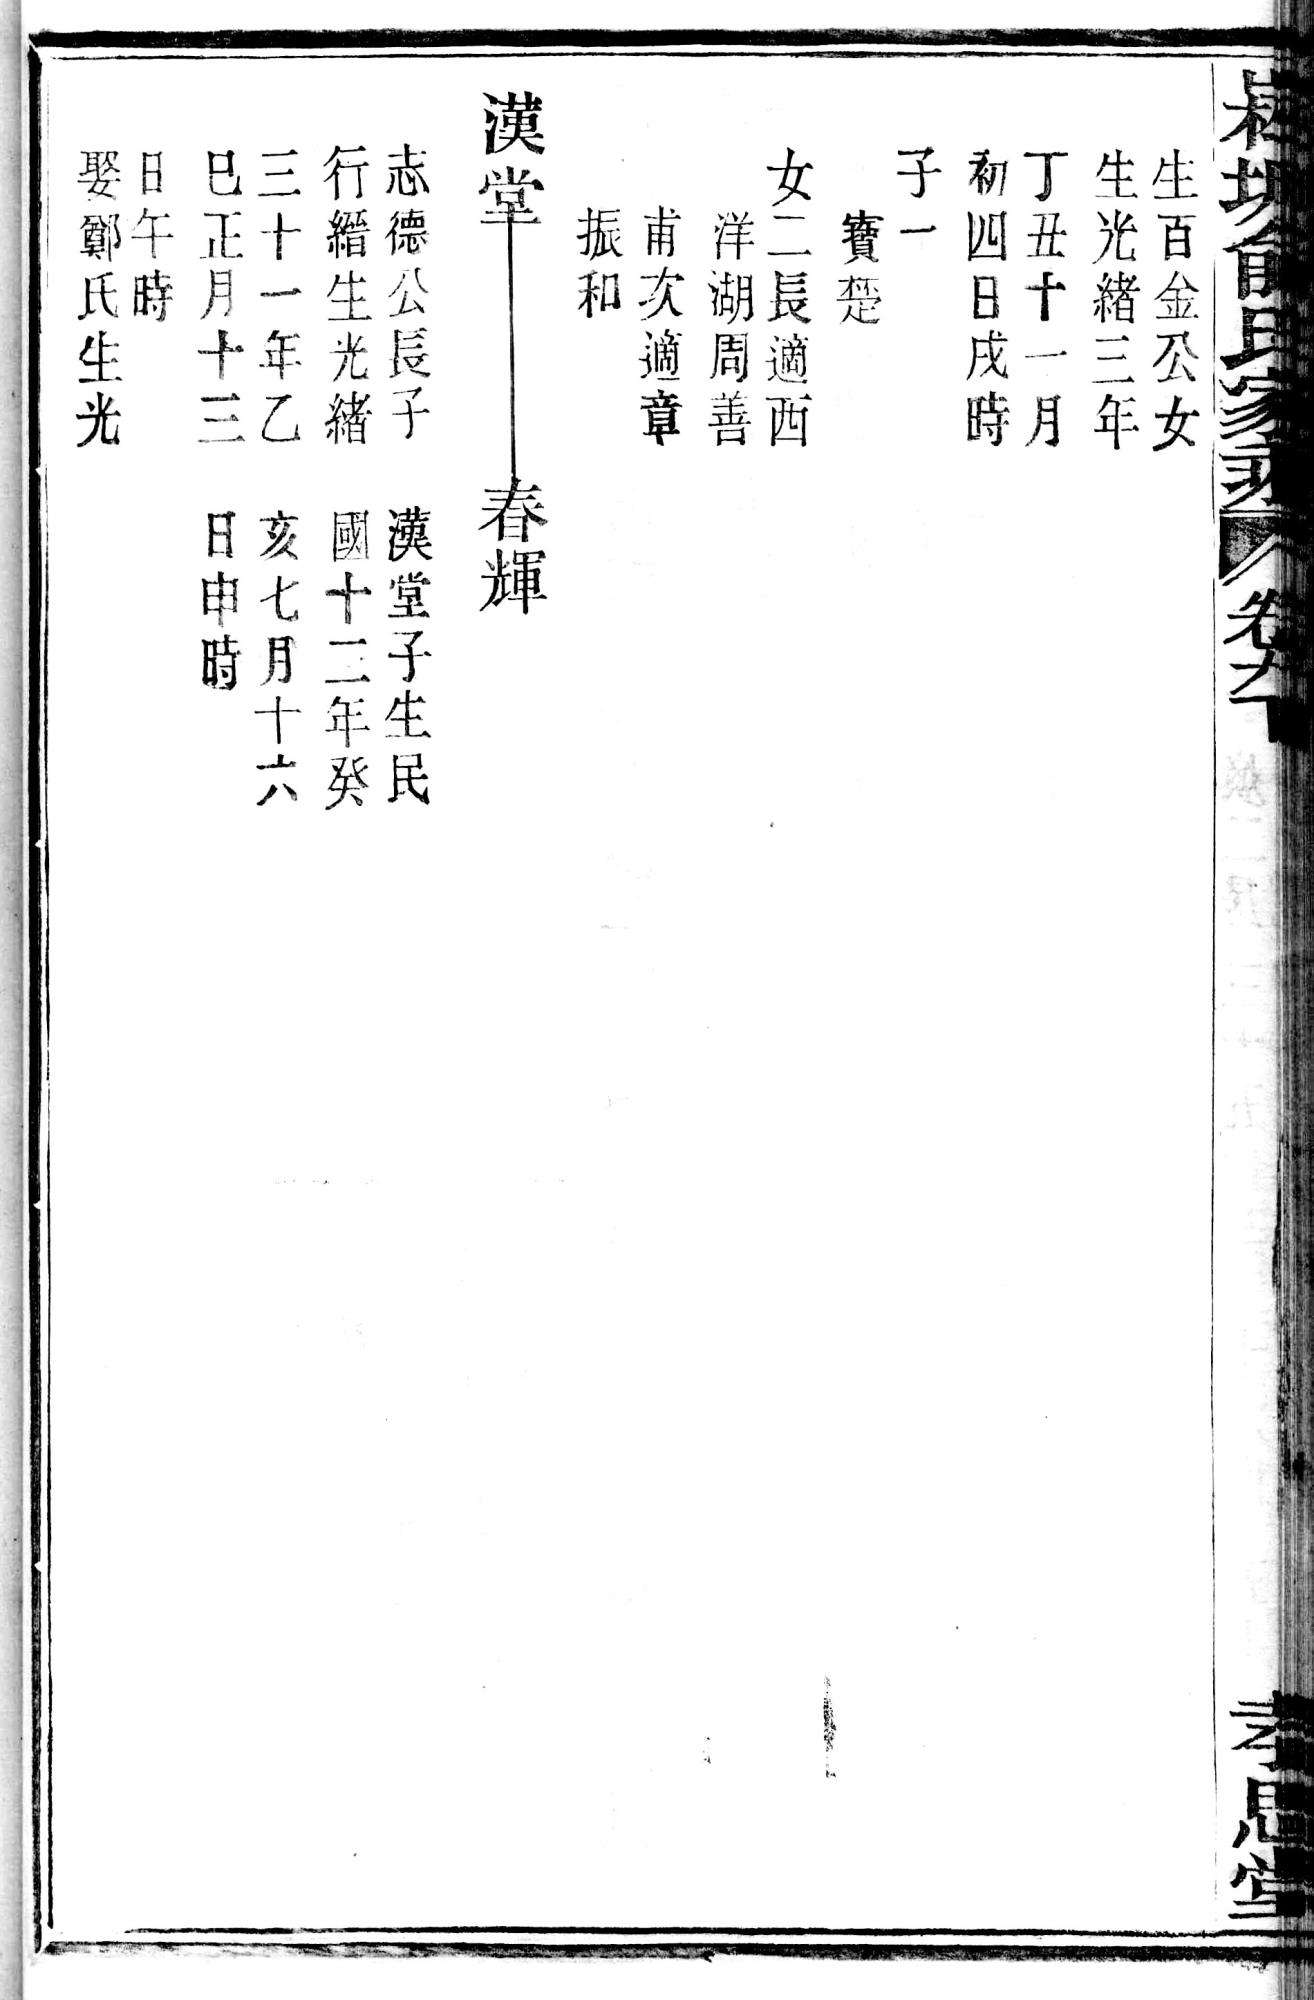 俞氏家乘
卷
孝思堂
生百金公女
生光緒三年
丁丑十一月
初四日戌時
子一
寶楚
女二長適西
洋湖周善
甫次適章
振和
漢堂
春輝
志德公長子
行縉生光緒
三十一年乙
巳正月十三
日午時
娶鄭氏生光
漢堂子生民
國十二年癸
亥七月十六
日申時